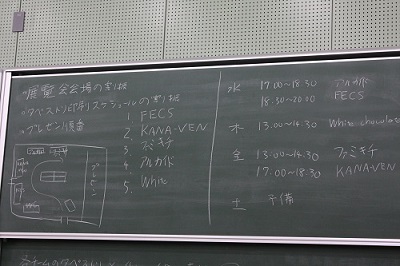 ・展覧会会場の掌握
・タペストリ印刷スケジュールの掌握
・プレゼン順番
1 FECS
2. KANA-VEN
3. ファミキチ
4. アルカイド
5. White
プレゼン
水 17:00~18:30 アルカイド
18:30~20:00 FECS
木 13:00~14:30 White chocolate
金 13:00~14:30 ファミキチ
17:00~18:30 KANA-VEN
土 予備